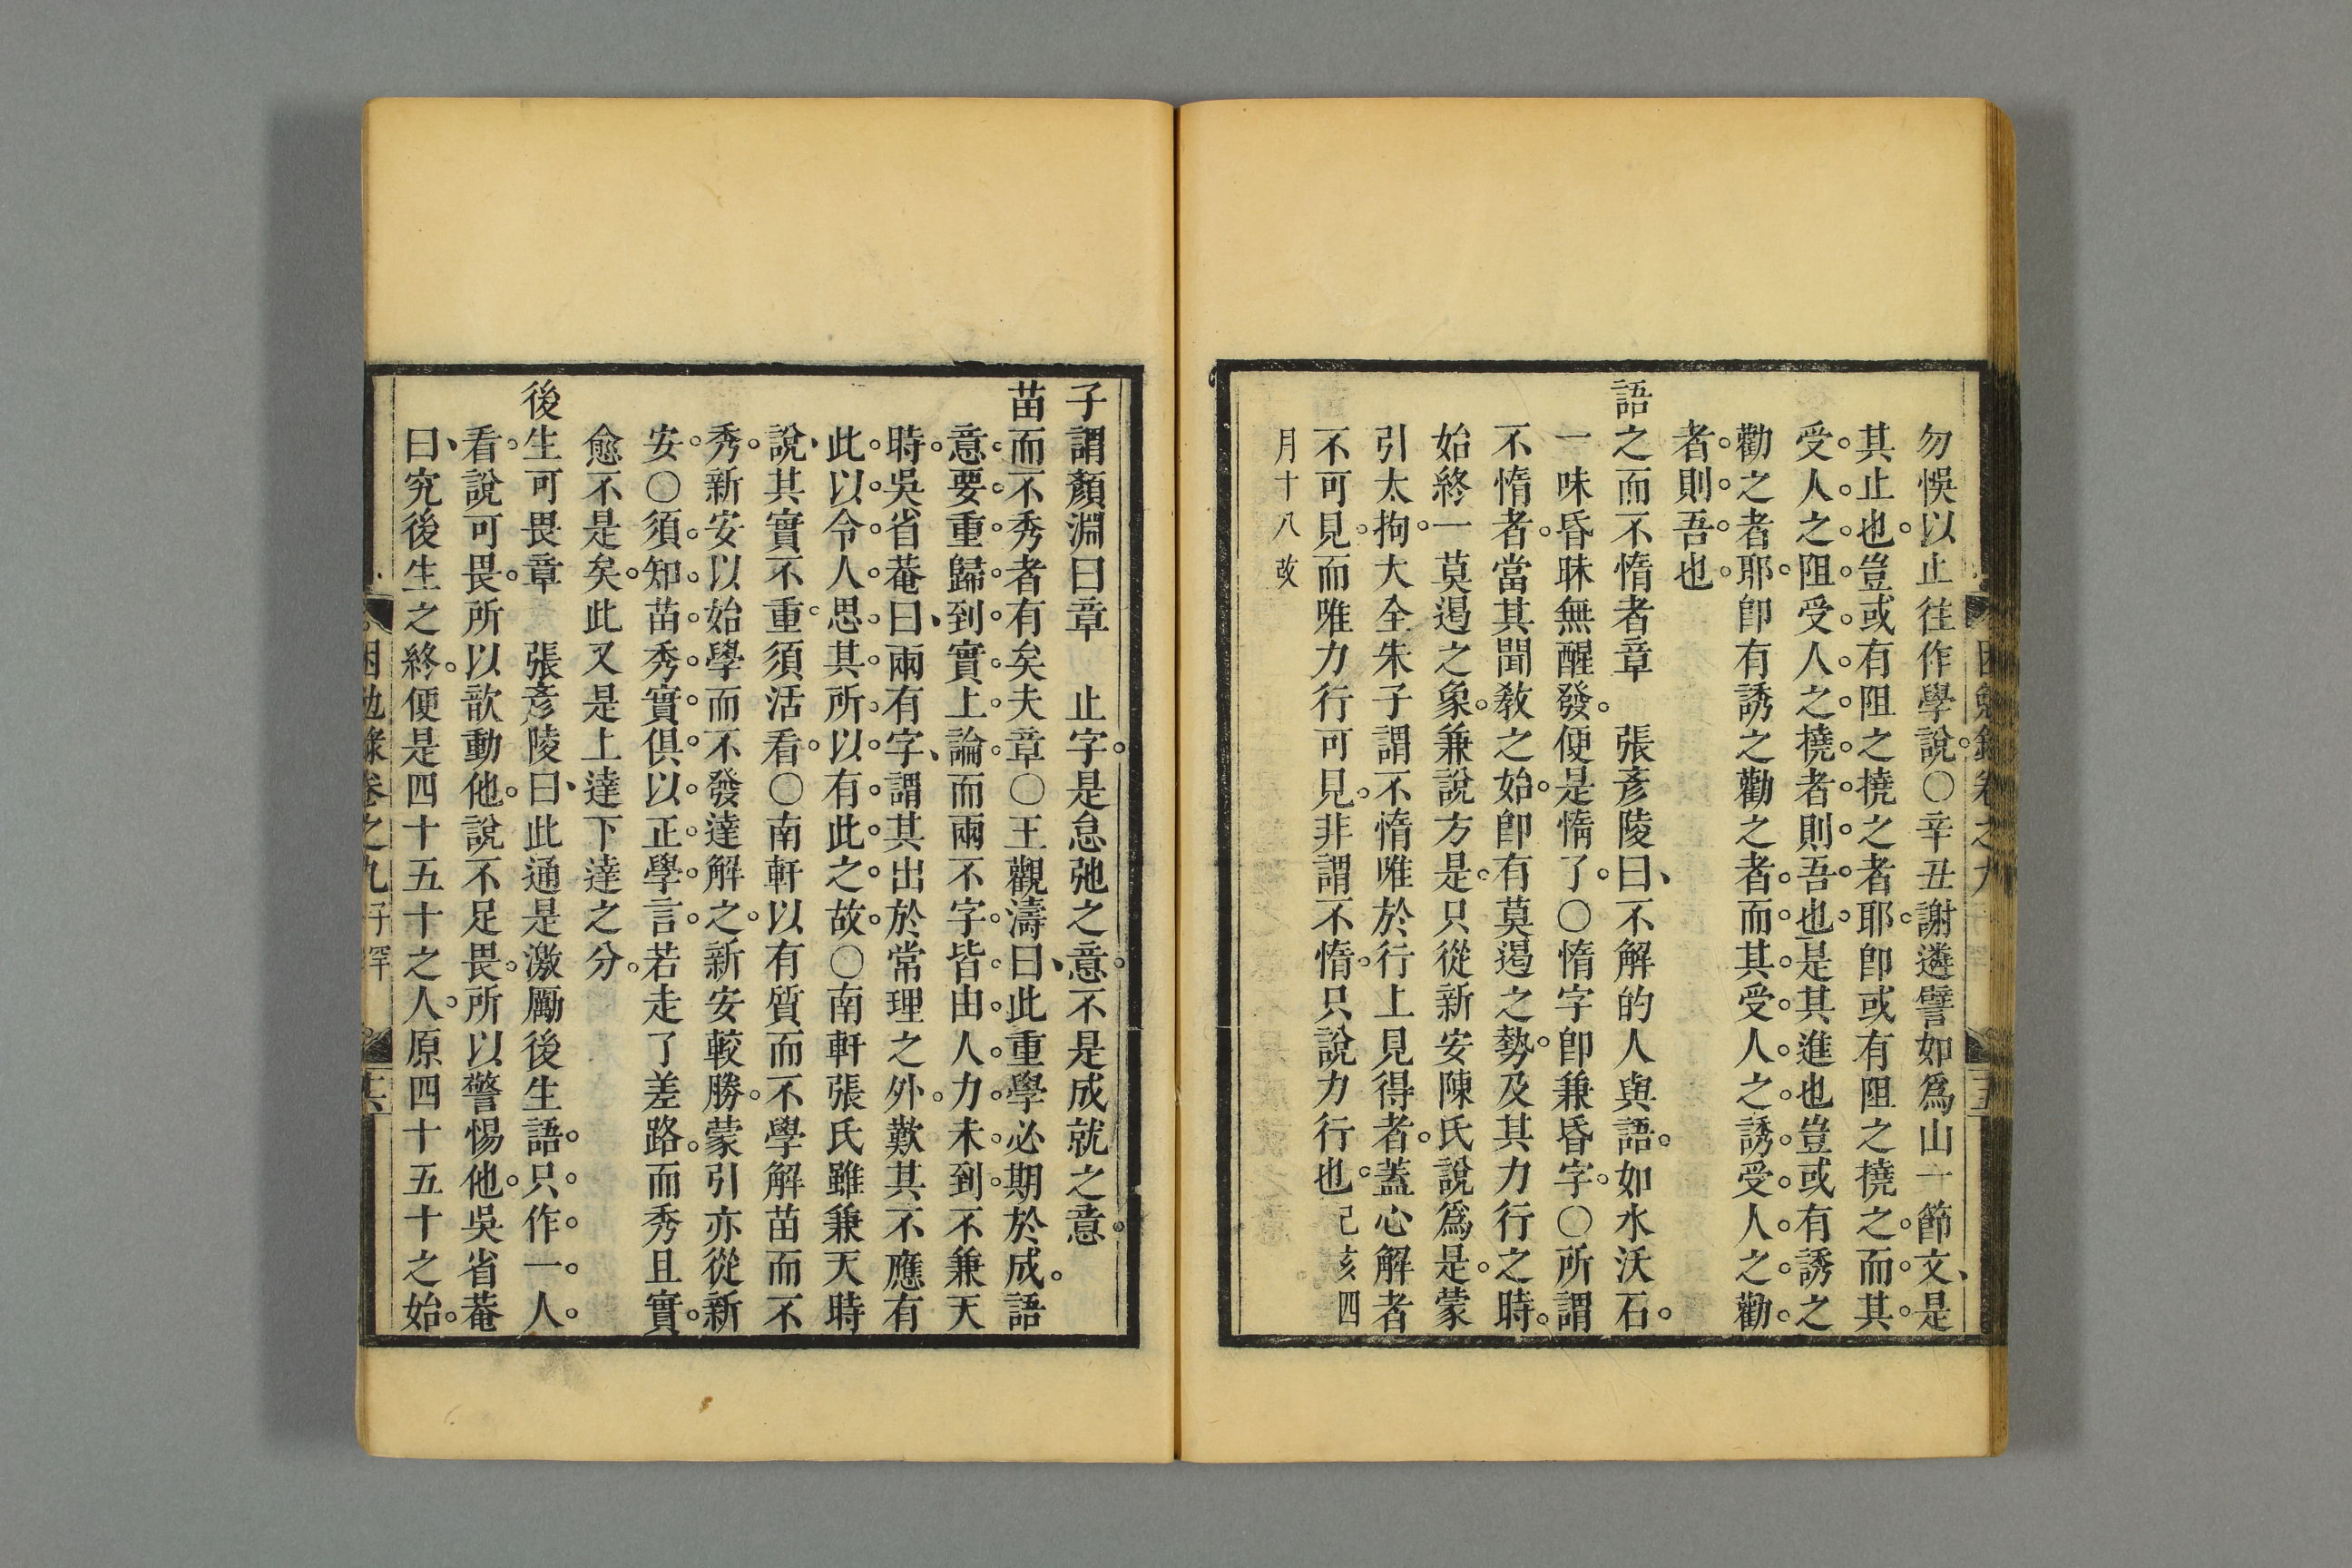 勿悞以止往作學說。〇辛丑謝遴譬如爲山一節文、是
其止也。豈或有阻之撓之者耶。卽或有阻之撓之。而。其。
受。人。之。阻。受。人。之。撓。者。則。吾。也。是其進也豈或有誘之
勸之者耶。卽有誘之勸之者。而。其。受。人。之。誘。受。人。之。勸。
者。則。吾。也。
語之而不惰者章 張彥陵曰、不解的人與語。如水沃石。
一味昏昧無醒發。便是惰了。〇惰字卽兼昏字。〇所謂
不惰者。當其聞敎之始。卽有莫遏之勢。及其力行之時。
始終一莫遏之象。兼說方是。只從新安陳氏說爲是。蒙
引太拘。大全朱子謂不惰唯於行上見得者。蓋心解者
不可見。而唯力行可見。非謂不惰。只說力行也。己亥四
月十八改
子謂顏淵曰章 止字。是怠弛之意。不是成就之意。
苗而不秀者有矣夫章〇王觀濤曰、此重學必期於成。語
意。要。重。歸。到。實。上。論。而兩不字。皆。由。人。力。未。到。不兼天
時。吳省菴曰、兩有字、謂其出於常理之外。歎其不應有
此。以。令。人。思。其。所。以。有。此。之。故。〇南軒張氏雖兼天時
說、其實不重。須活看。〇南軒以有質而不學解苗而不
秀。新安以始學而不發達解之。新安較勝。蒙引亦從新
安。〇須。知。苗。秀。實。俱。以。正。學。言。若走了差路。而秀且實。
愈不是矣。此又是上達下達之分。
後生可畏章 張彥陵曰、此通是激厲後生語。只。作。一。人。
看。說可畏。所以歆動他。說不足畏。所以警惕他。吳省菴
曰、究後生之終。便是四十五十之人。原四十五十之始。
困勉錄卷之九